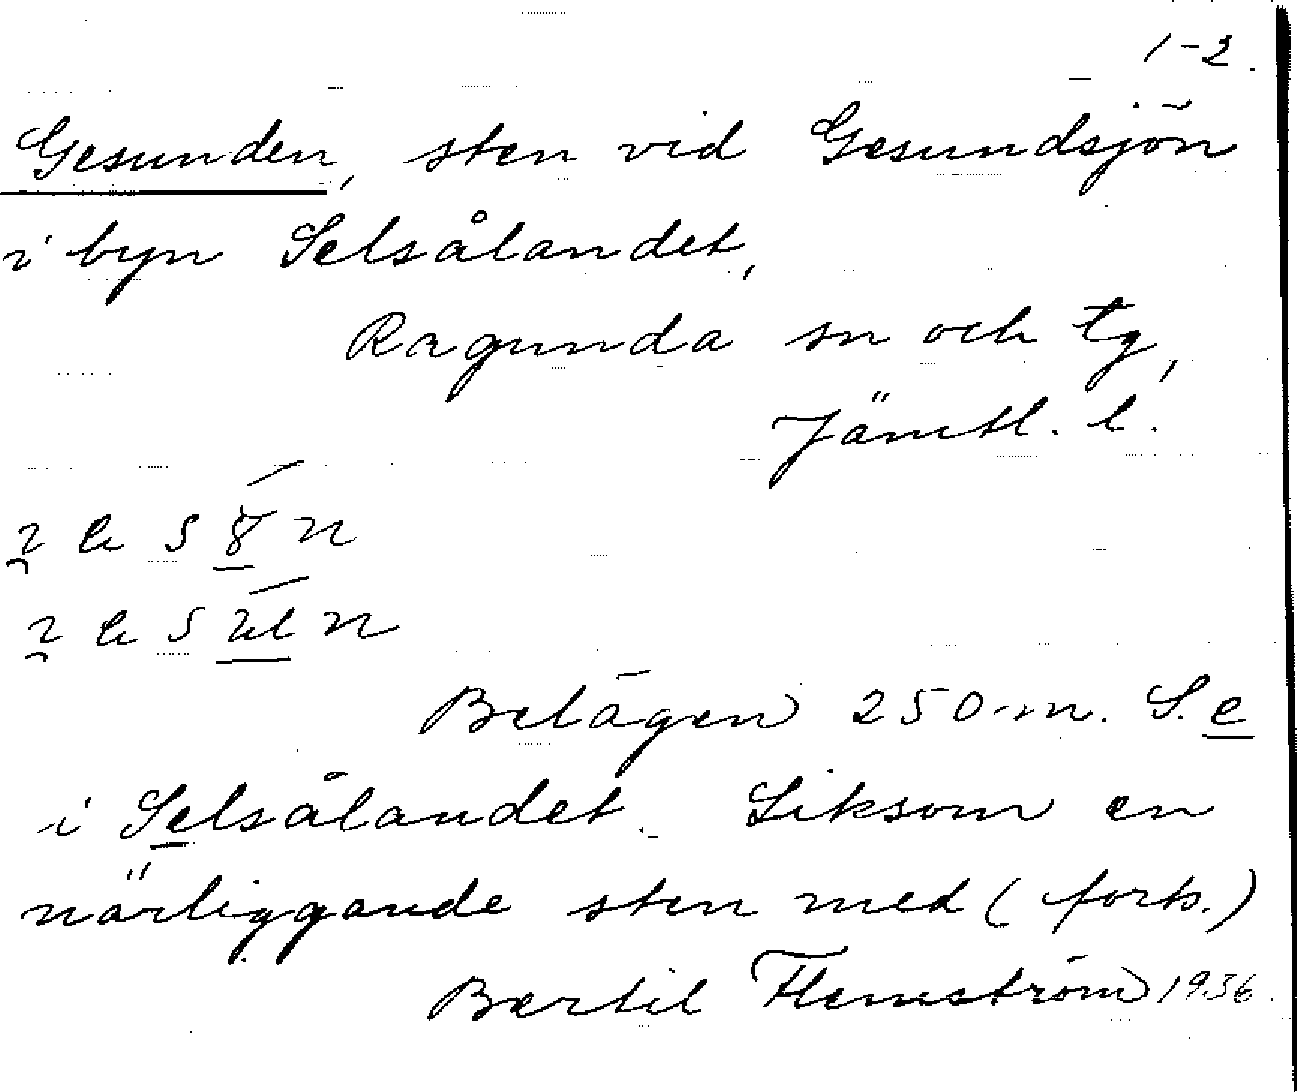 1-2.
Gesunden, sten vid Gesundsjön
i byn Selsålandet,
Ragunda sn och tg,
Jämtl. l.
Belägen 250 m. S. e
i Selsålandet. Liksom en
närliggande sten med (forts.)
Bertil Flemström 1936.